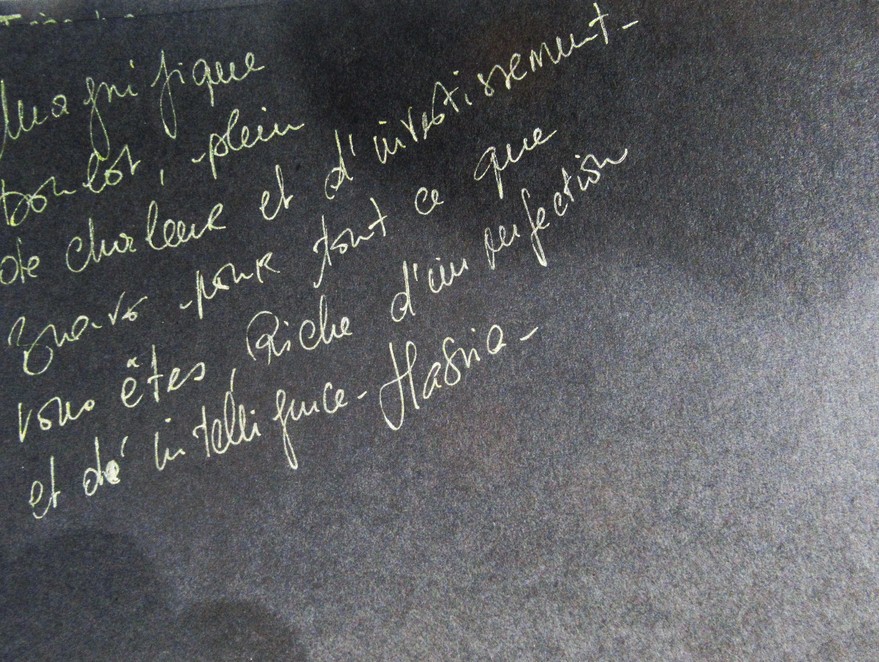 Magnifique
boulot, plein
de chaleur et d'investissement.
Bravo pour tout ce que
vous êtes, Riche d'imperfection
et d'intelligence - Hasnia -